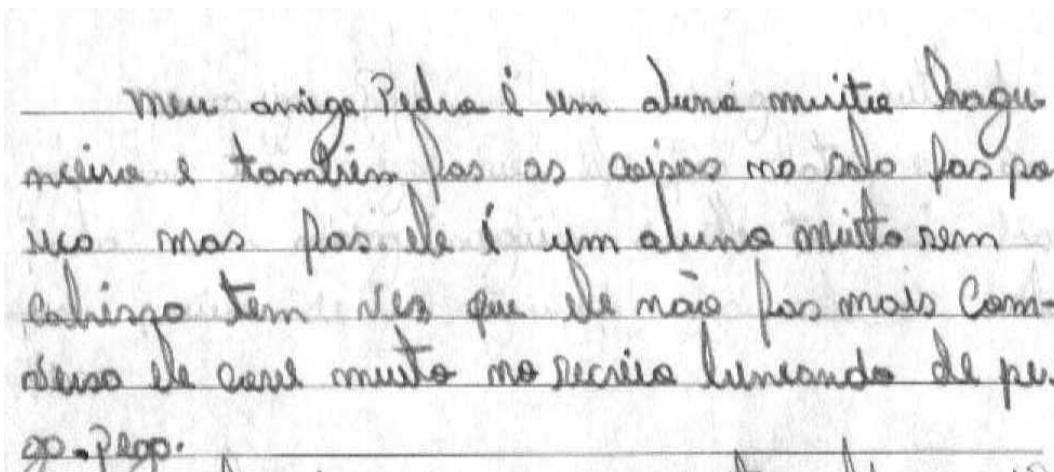 Meu amigo Pedro é um aluno muito bagu
neiro e também fas as coisas na sala fas po
uco mas fas ele é um aluno muito sem
cabessa tem vez que ele não fas mais com-
versa ele corre muito no recreio brincando de pe.
go-pego.